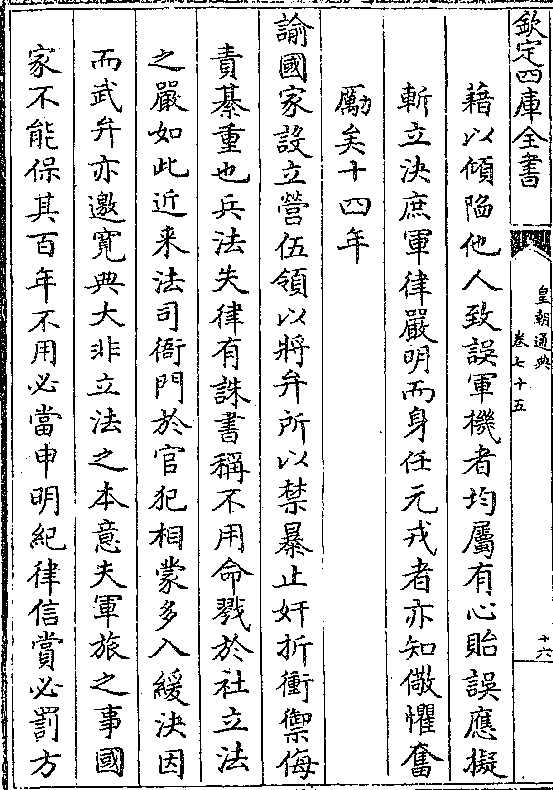 欽定四庫全書
皇朝通典
卷七十五
十六
藉以傾陷他人致誤軍機者均屬有心貽誤應擬
斬立決庶軍律嚴明而身任元戎者亦知儆懼奮
勵矣十四年
諭國家設立營伍領以將弁所以禁暴止奸折衝禦侮
責綦重也兵法失律有誅書稱不用命戮於社立法
之嚴如此近来法司衙門於官犯相蒙多入緩決因
而武弁亦邀寛典大非立法之本意夫軍旅之事國
家不能保其百年不用必當申明紀律信賞必罰方